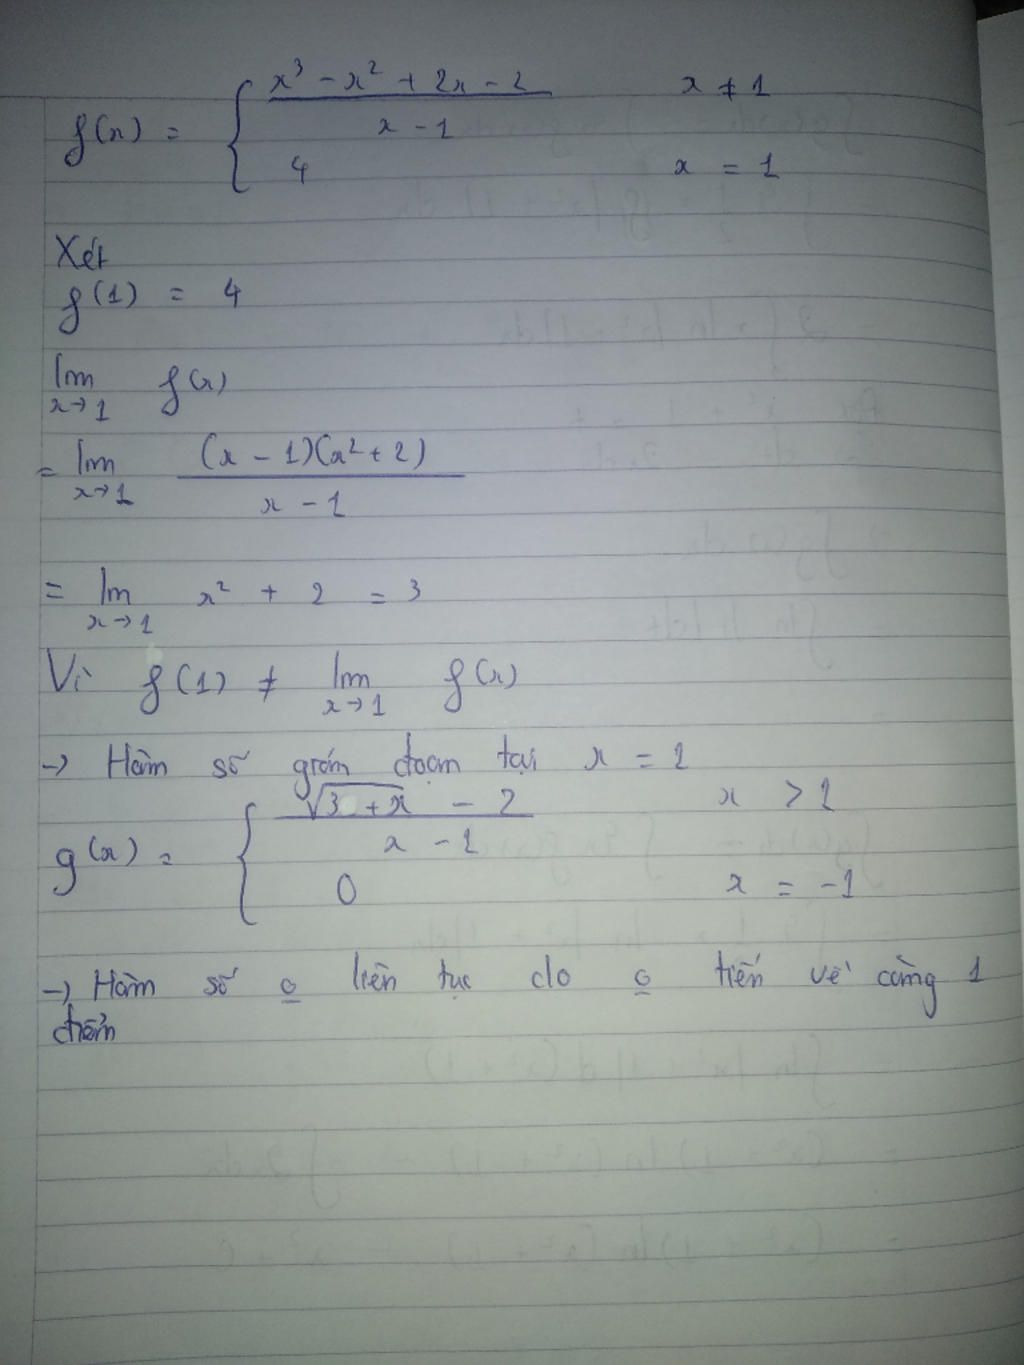 f(x) = { x³ - x² + 2x - 2 / x - 1    x ≠ 1
4    x = 1
Xét
f(1) = 4
lim x→1 f(x)
= lim x→1 (x - 1)(x² + 2) / x - 1
= lim x→1 x² + 2 = 3
Vì f(1) ≠ lim x→1 f(x)
→ Hàm số gián đoạn tại x = 1
g(x) = { √3 + x - 2 / x - 1    x > 1
0    x = -1
→ Hàm số o liên tục do o tiến về cùng 1
điểm